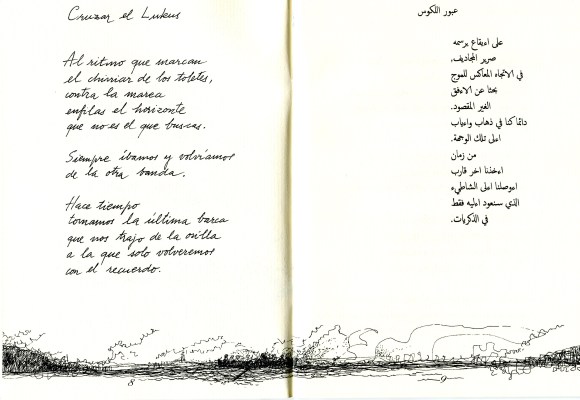 Cruzar el Lukus
Al ritmo que marcan
el chirriar de los toletes,
contra la marea
enfilas el horizonte
que no es el que buscas.
Siempre íbamos y volvíamos
de la otra banda.
Hace tiempo
tomamos la última barca
que nos trajo de la orilla
a la que solo volveremos
con el recuerdo.
8
عبور اللكوس
على اءيقاع يرسمه
صرير المجاديف،
في الاتجاه المعاكس للموج
بحثا عن الاءفق
الغير المقصود.
دائما كنا في ذهاب واءياب
اءلى تلك الوجهة.
من زمان
اءخذنا اخر قارب
اءوصلنا اءلى الشاطيء
الذي سنعود اءليه فقط
في الذكريات.
9